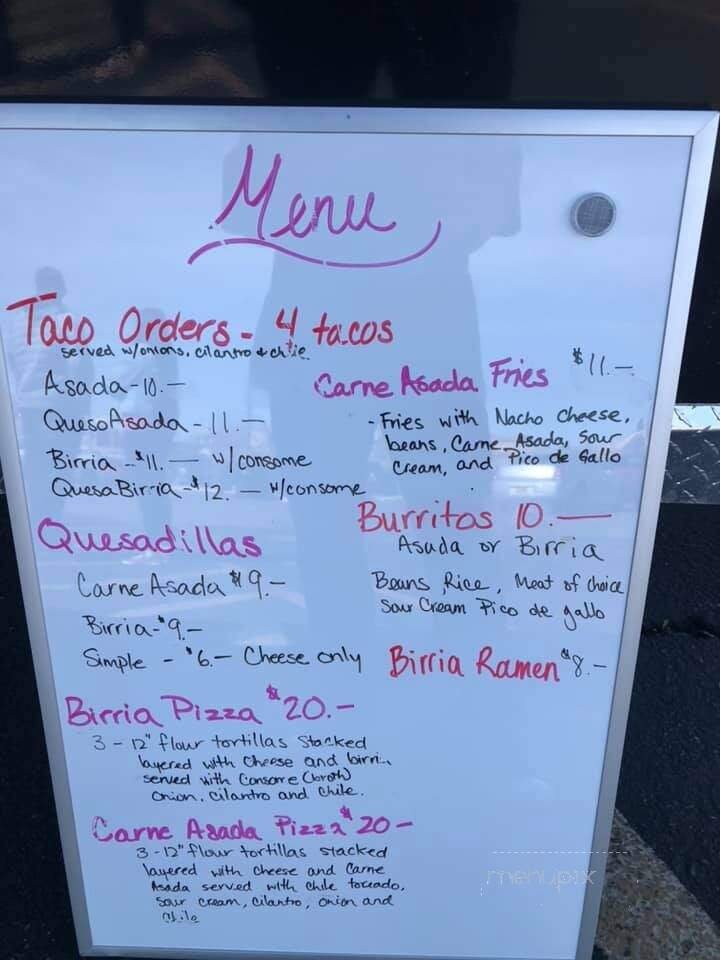 Menu
Taco Orders - 4 tacos
served w/onions, cilantro + chile
Asada - 10. —
QuesoAsada - 11. —
Birria - $11. — w/consome
QuesaBirria - $12. — w/consome
Quesadillas
Carne Asada $9. -
Birria - $9. -
Simple - $6. - Cheese only
Birria Pizza $20. -
3 - 12" flour tortillas stacked
layered with cheese and birria
served with Consome (broth)
Onion, cilantro and chile.
Carne Asada Pizza $20 -
3 - 12" flour tortillas stacked
layered with cheese and Carne
Asada served with chile toreado,
sour cream, cilantro, onion and
chile
Carne Asada Fries $11. —
- Fries with Nacho Cheese,
beans, Carne Asada, Sour
Cream, and Pico de Gallo
Burritos 10. —
Asada or Birria
Beans, Rice, Meat of choice
Sour Cream Pico de gallo
Birria Ramen $8. -
menupix